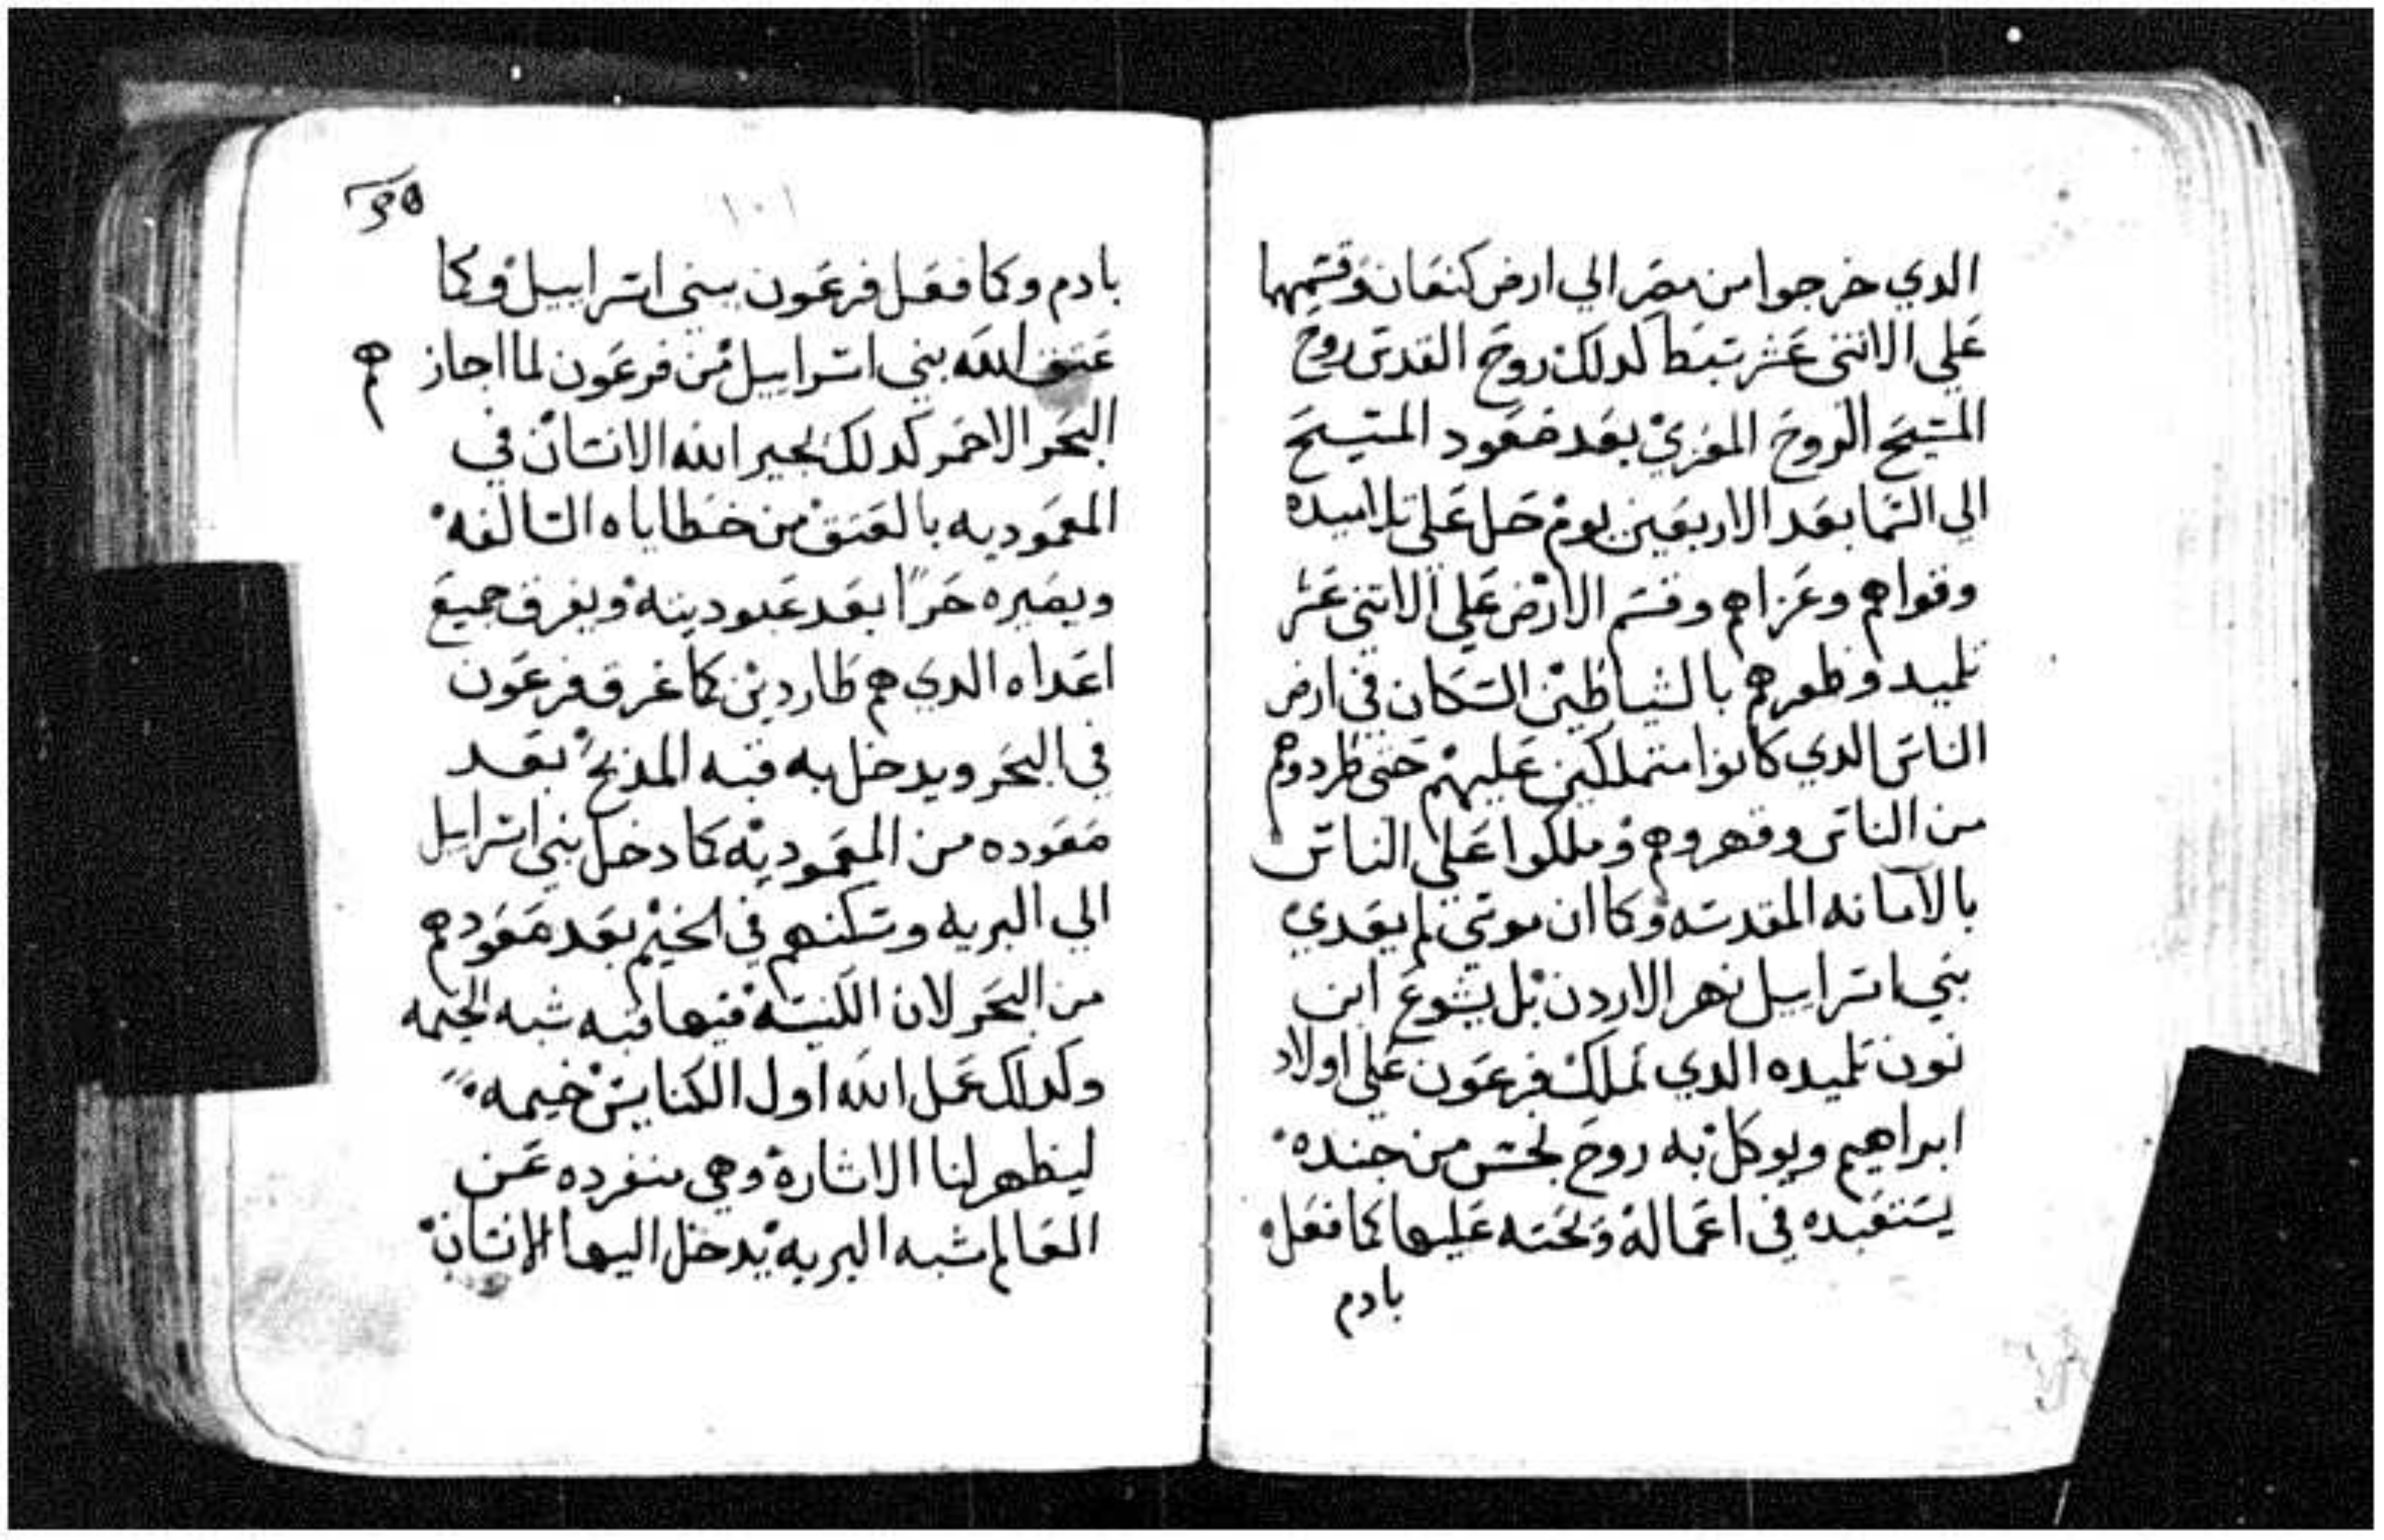 الدي خرجوا من مصر الي ارض كنعان وقسمها
علي الاتني عشر سبط كدلك روح القدس روح
المسيح الروح المعزي بعد صعود المسيح
الي السما بعد الاربعين يوم حل علي تلاميده
وقواهم وعزاهم وقسم الارض علي الاتني عشر
تلميد وظفرهم بالشياطين السكان في ارض
الناس الدي كانوا متملكين عليهم حتي طردوهم
من الناس وقهروهم وملكوا علي الناس
بالامانه المقدسه وكما ان موسي لم يعدي
بني اسراييل نهر الاردن بل يشوع ابن
نون تلميده الدي تملك فرعون علي اولاد
ابراهيم ويوكل به روح نجس من جنده
يستعبده في اعماله وتحته عليها كما فعل
بادم
١٠١
بادم وكما فعل فرعون ببني اسراييل وكما
عتق الله بني اسراييل من فرعون لما اجازهم
البحر الاحمر كدلك يجير الله الانسان في
المعموديه بالعتق من خطاياه السالفه
ويصيره حرًا بعد عبوديته ويغرق جميع
اعداه الدي هم طاردين كما غرق فرعون
في البحر ويدخل به قبه المدبح بعد
صعوده من المعموديه كما دخل بني اسراييل
الي البريه وسكنهم في الخيم بعد صعودهم
من البحر لان الكنيسه فيها قبه شبه الخيمه
وكدلك عمل الله اول الكنايس خيمه
ليظهر لنا الاشاره وهي منفرده عن
العالم شبه البريه يدخل اليها الانسان